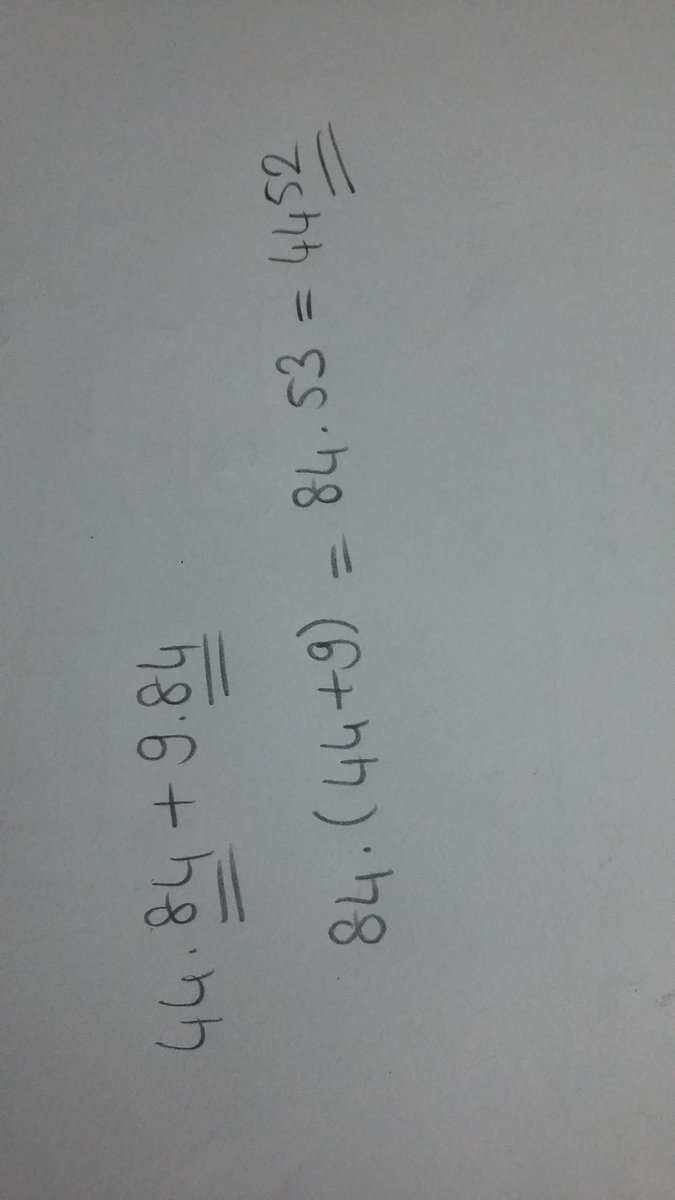 44.84 + 9.84
84.(44+9) = 84.53 = 4452